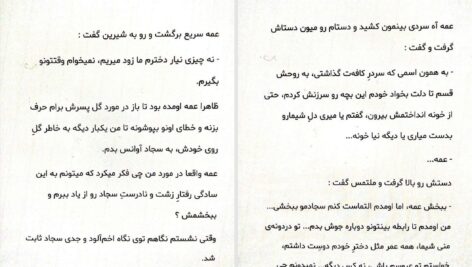 عمه آه سردی بینمون کشید و دستام رو میون دستاش
گرفت و گفت :
- به همون اسمی که سردر کافه‌ت گذاشتی، به روحش
قسم تا دلت بخواد خودم این بچه رو سرزنش کردم، حتی
از خونه انداختمش بیرون، گفتم یا میری دلِ شیمارو
بدست میاری یا دیگه نیا خونه...
- عمه...
دستش رو بالا گرفت و ملتمس گفت :
- ببخش عمه، اما اومدم التماست کنم سجادمو ببخشی...
من اومدم تا رابطه بینتونو دوباره جوش بدم... تو دردونه‌ی
منی شیما، همه عمر مثل دختر خودم دوست داشتم،
عمه سریع برگشت و رو به شیرین گفت :
- نه چیزی نیار دخترم ما زود میریم، نمیخوام وقتتونو
بگیرم.
ظاهرا عمه اومده بود تا باز در مورد گل پسرش برام حرف
بزنه و خطای اونو بپوشونه تا من یکبار دیگه به خاطر گلِ
روی خودش، به سجاد آوانس بدم.
عمه واقعا در مورد من چی فکر میکرد که میتونم به این
سادگی رفتارِ زشت و نادرستِ سجاد رو از یاد ببرم و
ببخشمش ؟
وقتی نشستم نگاهم توی نگاه اخم‌آلود و جدی سجاد ثابت
شد.